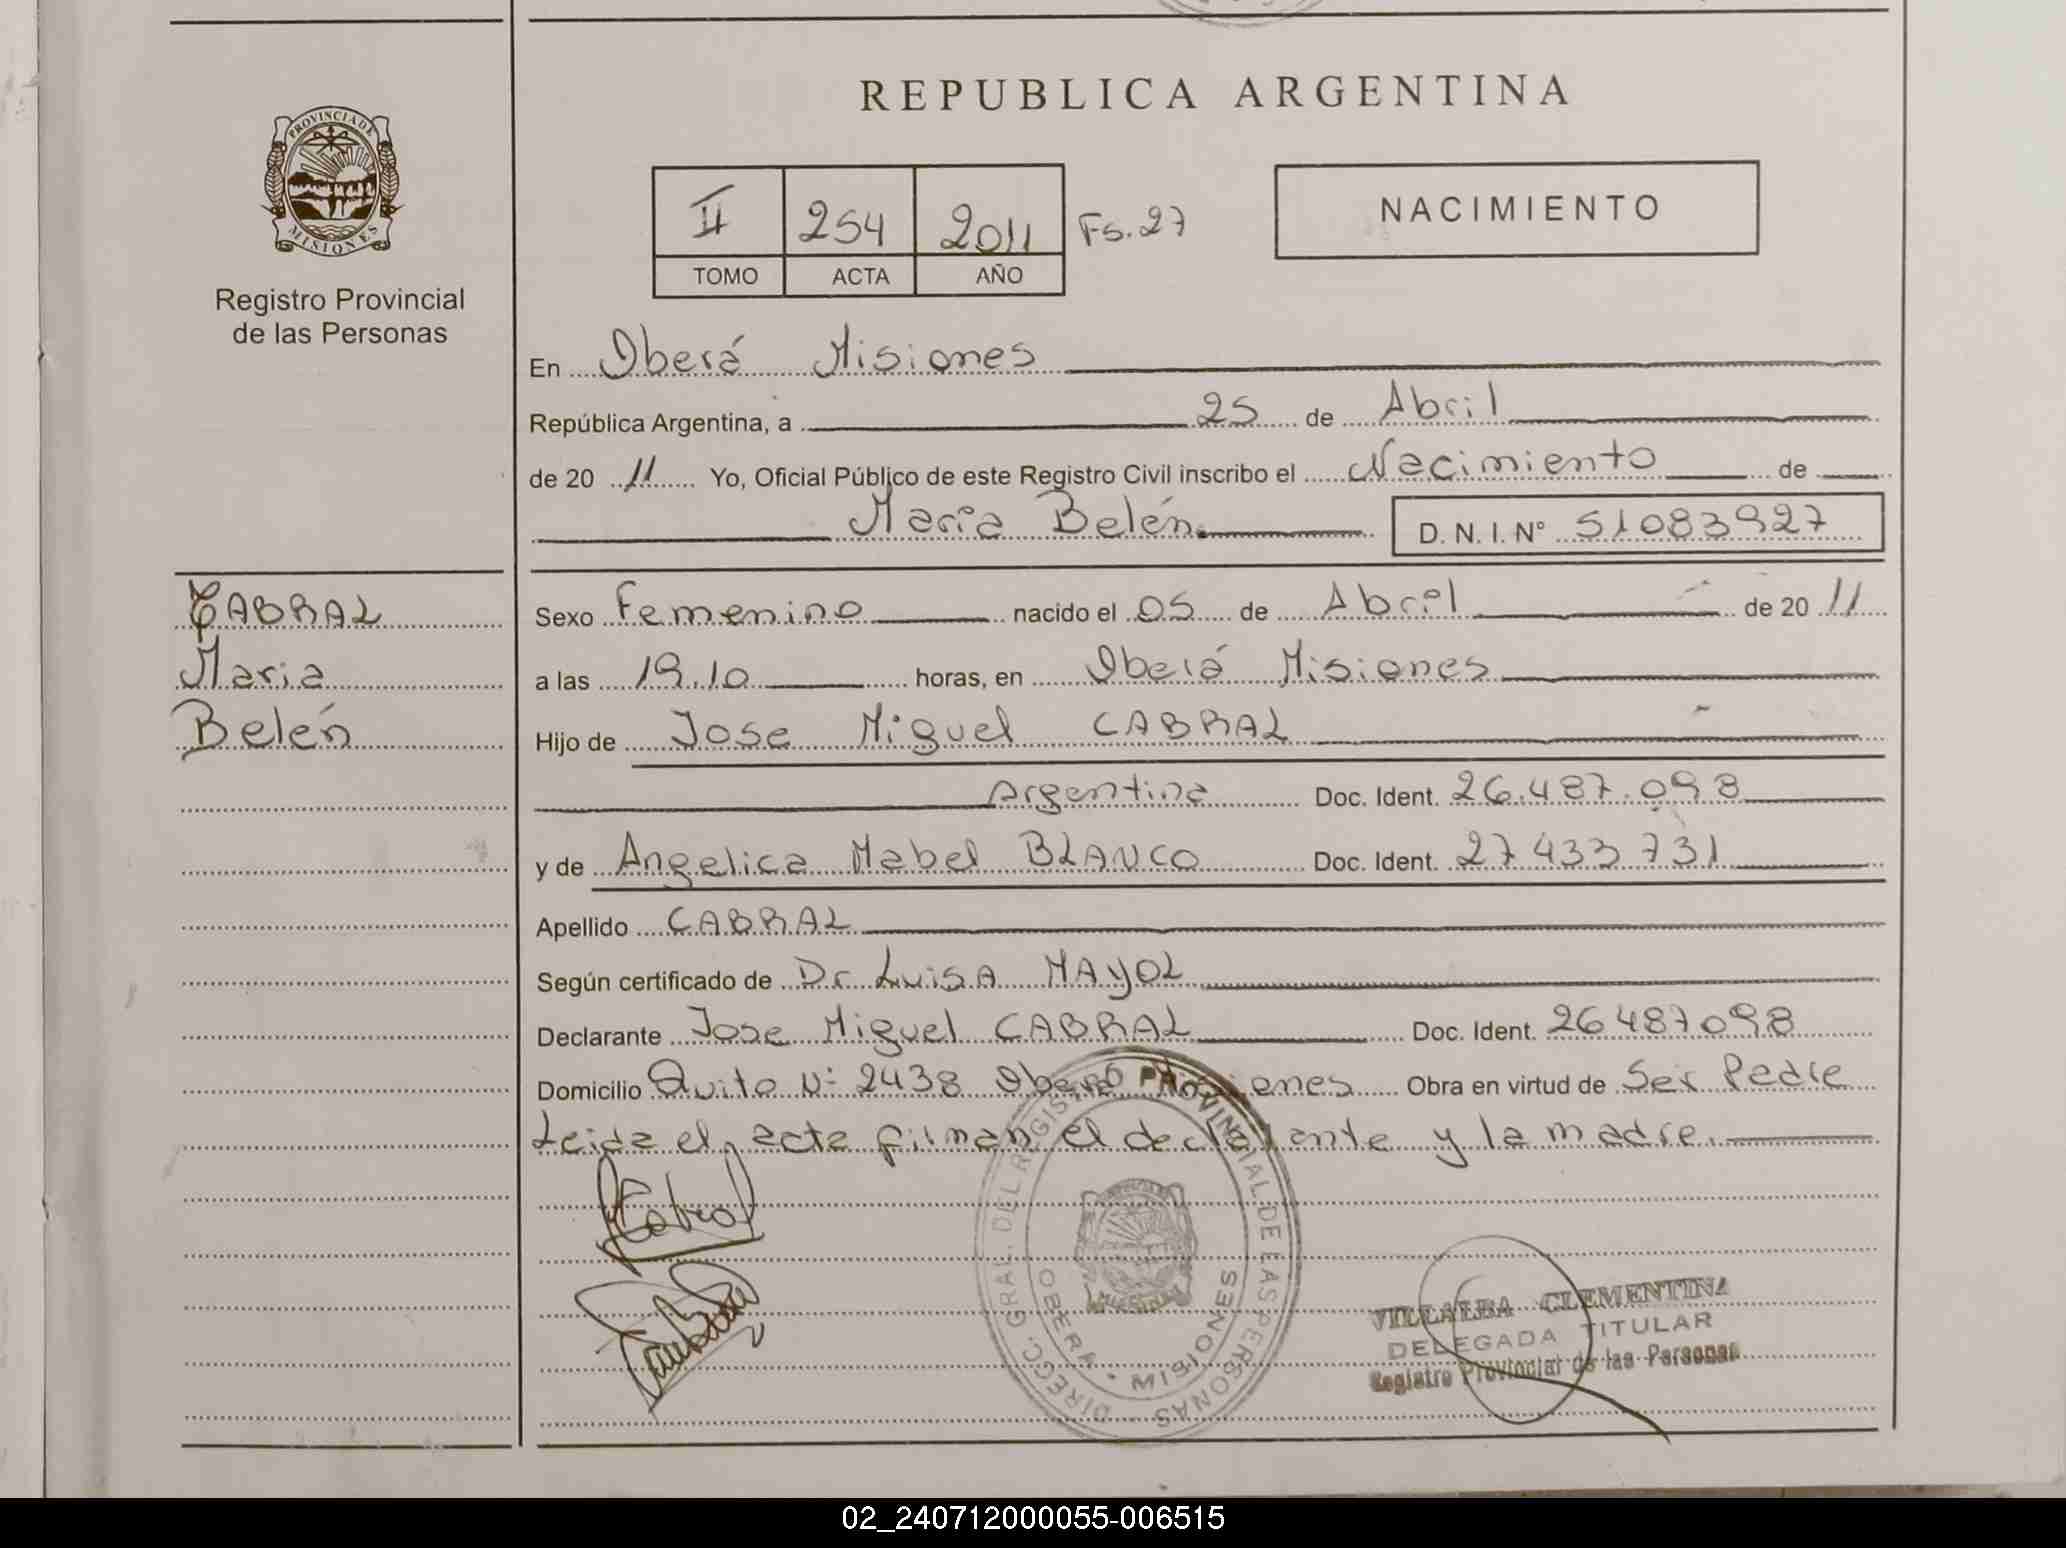 REPUBLICA ARGENTINA
PROVINCIA DE
MISIONES
Registro Provincial
de las Personas
II 254 2011 Fs. 27
TOMO ACTA AÑO
NACIMIENTO
En Oberá Misiones
República Argentina, a 25 de Abril
de 20 11 Yo, Oficial Público de este Registro Civil inscribo el Nacimiento de
María Belén D. N. I. N° 51083927
CABRAL
Maria
Belén
Sexo Femenino nacido el 05 de Abril de 20 11
a las 19.10 horas, en Oberá Misiones
Hijo de Jose Miguel CABRAL
Argentina Doc. Ident. 26.487.098
y de Angelica Mabel BLANCO Doc. Ident. 27433731
Apellido CABRAL
Según certificado de Dr. Luisa MAYOL
Declarante Jose Miguel CABRAL Doc. Ident. 26487098
Domicilio Quito N° 2438 Oberá Misiones Obra en virtud de Ser Padre
Leida el acta firman el declarante y la madre.
Cabral
DIRECC. GRAL. DEL REGISTRO PROVINCIAL DE LAS PERSONAS
OBERA - MISIONES
VILLALBA CLEMENTINA
DELEGADA TITULAR
Registro Provincial de las Personas
02_240712000055-006515